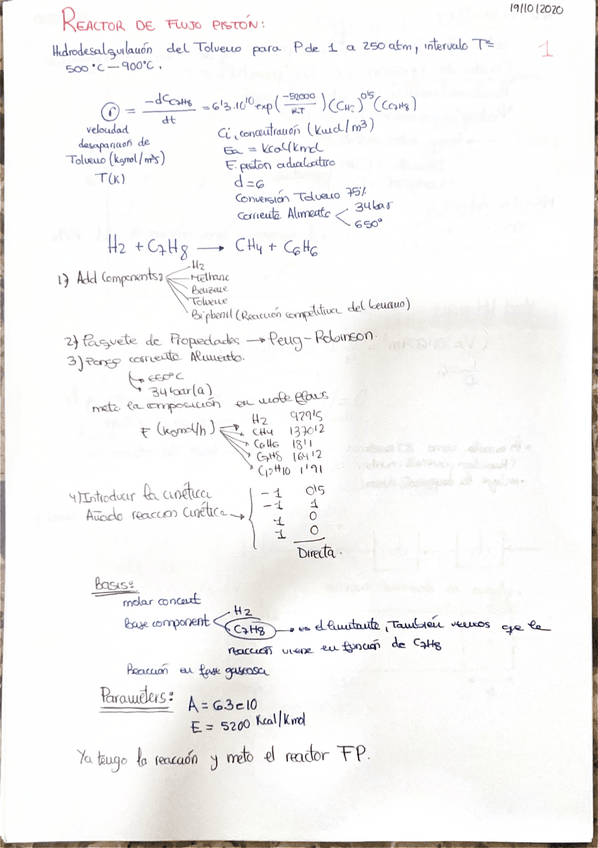 19/10/2020
REACTOR DE FLUJO PISTÓN:
1
Hidrodesalquilación del Tolueno para P de 1 a 250 atm, intervalo T=
500°C — 900°C.
r = -dC7H8/dt = 6'3.10^10 exp(-52000/R.T) (CH2)^0'5 (C7H8)
velocidad
desaparición de
Tolueno (kgmol/m³s)
T(K)
Ci, concentración (kmol/m³)
Ea = kcal/kmol
F. pistón adiabático
d=6
Conversión Tolueno 75%
Corriente Alimento 34 bar
650°
H2 + C7H8 → CH4 + C6H6
1) Add Components: H2
Methane
Benzene
Tolueno
Biphenil (Reacción competitiva del benceno)
2) Paquete de Propiedades → Peng-Robinson.
3) Pongo corriente Alimento.
650°C
34 bar(a)
meto la composición en mole flows
F (kgmol/h) H2 929'5
CH4 1370'2
C6H6 18'1
C7H8 164'2
C12H10 1'91
4) Introducir la cinética
Añado reacción cinética →
-1 0'5
-1 1
1 0
1 0
Directa.
Basis:
molar concent
Base component H2
C7H8 → es el limitante, También vemos que la
reacción viene en función de C7H8
Reacción en fase gaseosa
Parameters: A = 6.3e10
E = 5200 Kcal/Kmol
Ya tengo la reacción y meto el reactor FP.